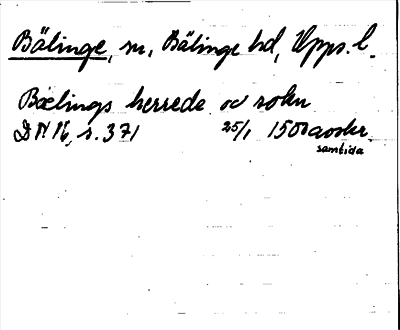 Bälinge, sn, Bälinge hd, Upps. l.
Bælings herrede oc sokn
DN 16, s. 371 25/1 1500 avskr.
samtida